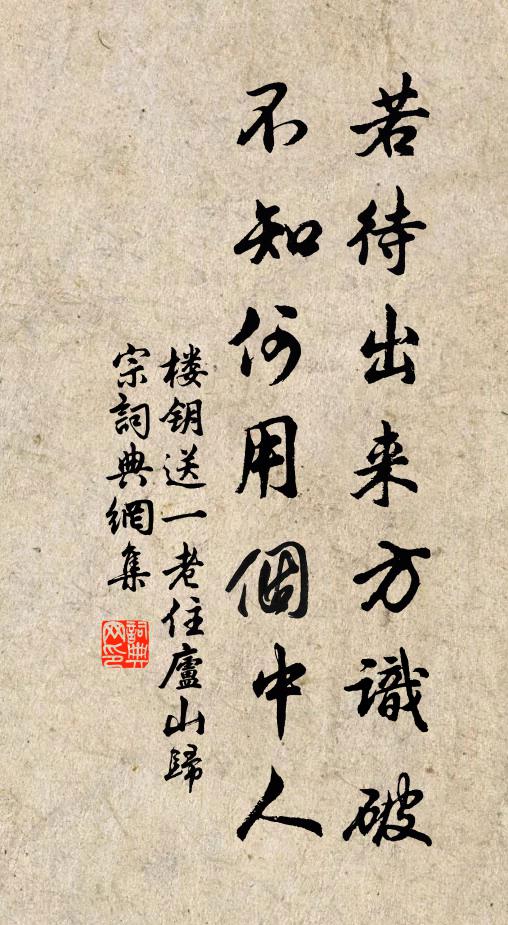 若待出来方識破
不知何用個中人
楼钥送一老住廬山歸
宗詞典網集
詞典
网印